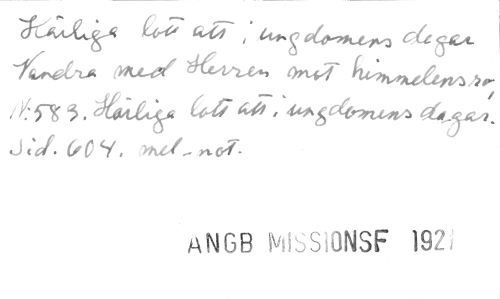 Härliga lott att i ungdomens dagar
Vandra med Herren mot himmelens ro,
N:583. Härliga lott att i ungdomens dagar.
Sid. 604. mel-not.
ANGB MISSIONSF 1921